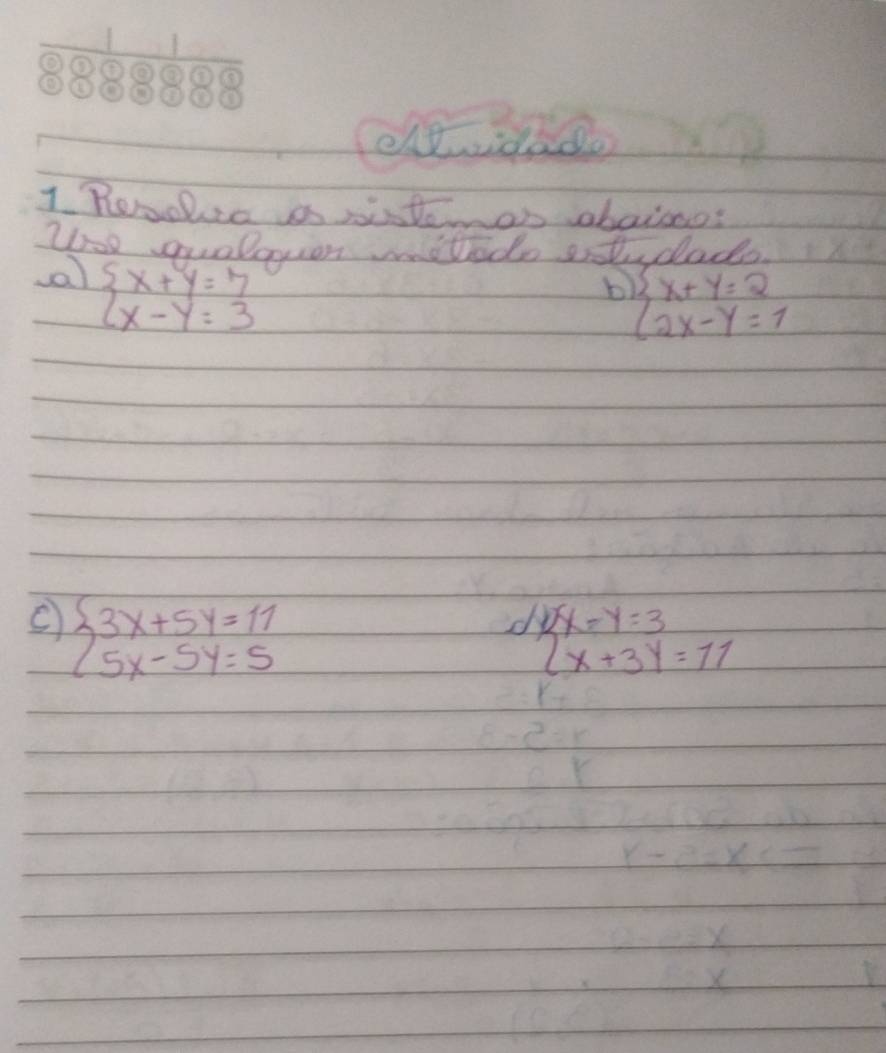 Atividade
1- Resolva os sistemas abaixo:
Use qualquer método estudado.
a) { x + y = 7
{ x - y = 3
b) { x + y = 2
{ 2x - y = 1
c) { 3x + 5y = 11
{ 5x - 5y = 5
d) { x - y = 3
{ x + 3y = 11